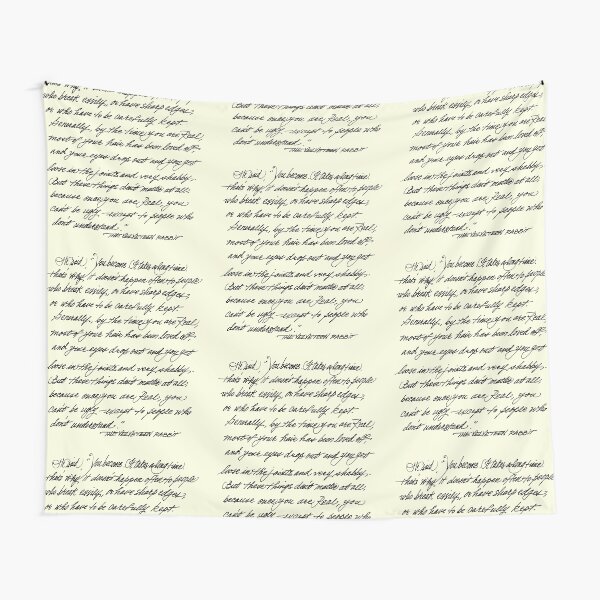 that's why it doesn't happen often to people
who break easily, or have sharp edges,
or who have to be carefully kept.
Actually, by the time you are Real,
most of your hair has been loved off
and your eyes drop out and you get
loose in the joints and very shabby.
But these things don't matter at all;
because once you are Real, you
can't be ugly—except to people who
don't understand."
—THE VELVETEEN RABBIT
He said, "You become. It takes a long time.
that's why it doesn't happen often to people
who break easily, or have sharp edges,
or who have to be carefully kept.
Actually, by the time you are Real,
most of your hair has been loved off
and your eyes drop out and you get
loose in the joints and very shabby.
But these things don't matter at all;
because once you are Real, you
can't be ugly—except to people who
don't understand."
—THE VELVETEEN RABBIT
He said, "You become. It takes a long time.
that's why it doesn't happen often to people
who break easily, or have sharp edges,
or who have to be carefully kept.
But these things don't matter at all;
because once you are Real, you
can't be ugly—except to people who
don't understand."
—THE VELVETEEN RABBIT
He said, "You become. It takes a long time.
that's why it doesn't happen often to people
who break easily, or have sharp edges,
or who have to be carefully kept.
Actually, by the time you are Real,
most of your hair has been loved off
and your eyes drop out and you get
loose in the joints and very shabby.
But these things don't matter at all;
because once you are Real, you
can't be ugly—except to people who
don't understand."
—THE VELVETEEN RABBIT
He said, "You become. It takes a long time.
that's why it doesn't happen often to people
who break easily, or have sharp edges,
or who have to be carefully kept.
Actually, by the time you are Real,
most of your hair has been loved off
and your eyes drop out and you get
loose in the joints and very shabby.
But these things don't matter at all;
because once you are Real, you
can't be ugly—except to people who
who break easily, or have sharp edges,
or who have to be carefully kept.
Actually, by the time you are Real,
most of your hair has been loved off
and your eyes drop out and you get
loose in the joints and very shabby.
But these things don't matter at all;
because once you are Real, you
can't be ugly—except to people who
don't understand."
—THE VELVETEEN RABBIT
He said, "You become. It takes a long time.
that's why it doesn't happen often to people
who break easily, or have sharp edges,
or who have to be carefully kept.
Actually, by the time you are Real,
most of your hair has been loved off
and your eyes drop out and you get
loose in the joints and very shabby.
But these things don't matter at all;
because once you are Real, you
can't be ugly—except to people who
don't understand."
—THE VELVETEEN RABBIT
He said, "You become. It takes a long time.
that's why it doesn't happen often to people
who break easily, or have sharp edges,
or who have to be carefully kept.